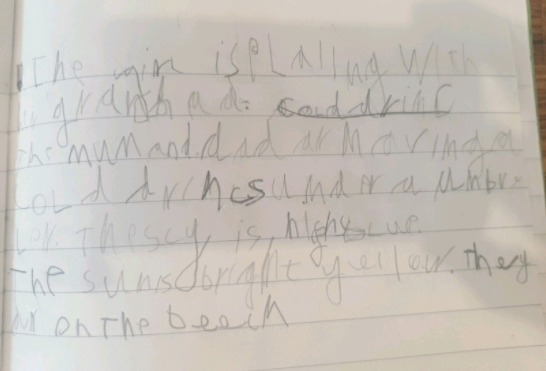 The is PLAllng With
grandhad. cold drinc
The mum and.dad ar Having a
cOLd drincs under a umbre-
ler. Thescy, is, highblue.
The sunis bright yellow. They
ar on The beech